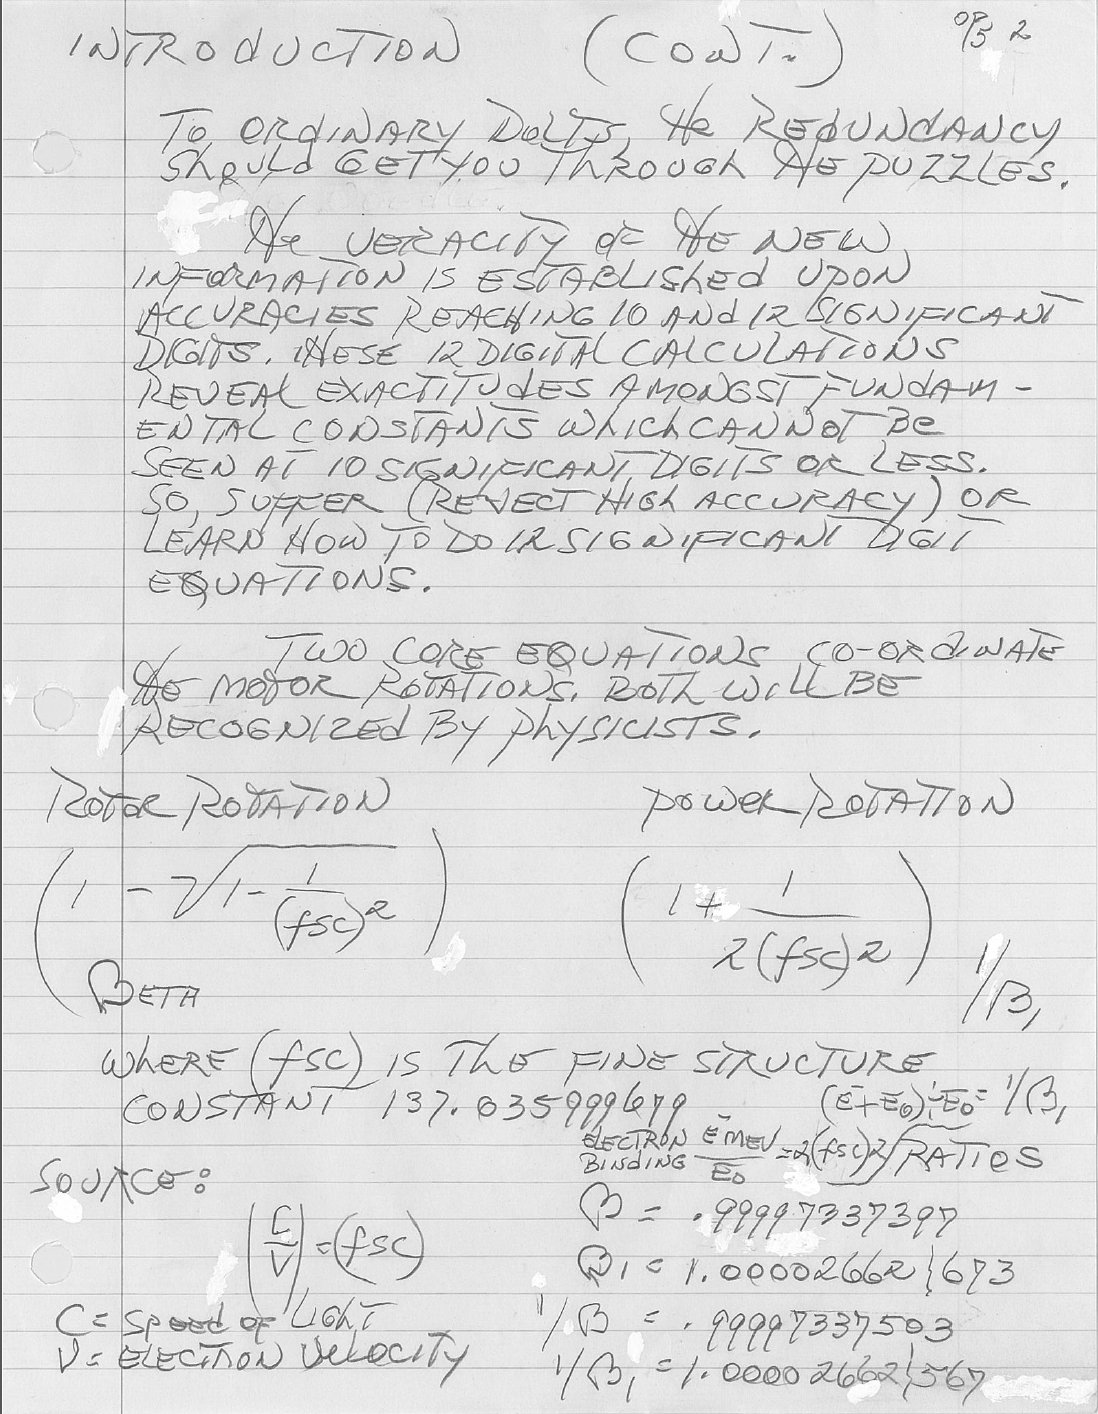 INTRODUCTION (CONT.) 2
TO ORDINARY DOLTS, the REDUNDANCY
Should GET YOU THROUGH tHE PUZZLES.
the VERACITY OF tHE NEW
INFORMATION IS ESTABLIShed UPON
ACCURACIES REACHING 10 ANd 12 SIGNIFICANT
DIGITS. tHESE 12 DIGITAL CALCULATIONS
REVEAL EXACTITUDES AMONGST FUNDAM-
ENTAL CONSTANTS WhICh CANNOT BE
SEEN AT 10 SIGNIFICANT DIGITS OR LESS.
SO, SUFFER (REJECT HIGh ACCURACY) OR
LEARN HOW TO DO 12 SIGNIFICANT DIGIT
EQUATIONS.
TWO CORE EQUATIONS CO-ORdINATE
tHE MOTOR ROTATIONS. BOTh WILL BE
RECOGNIZEd BY PhYSICISTS.
ROTOR ROTATION POWER ROTATION
(1 - √1 - 1/(fsc)2) (1 + 1/2(fsc)2)
BETA 1/β1
WHERE (fsc) IS THE FINE STRUCTURE
CONSTANT 137.035999679 (E+E0)÷E0= 1/β1
ELECTRON BINDING E MEV/E0 = 2(fsc)2 RATIOS
SOURCE:
β = .99997337397
(C/V) = (fsc)
β1 = 1.00002662 673
C = SPEED OF LIGhT
1/β = .99997337503
V = ELECTRON VELOCITY
1/β1 = 1.00002662 567